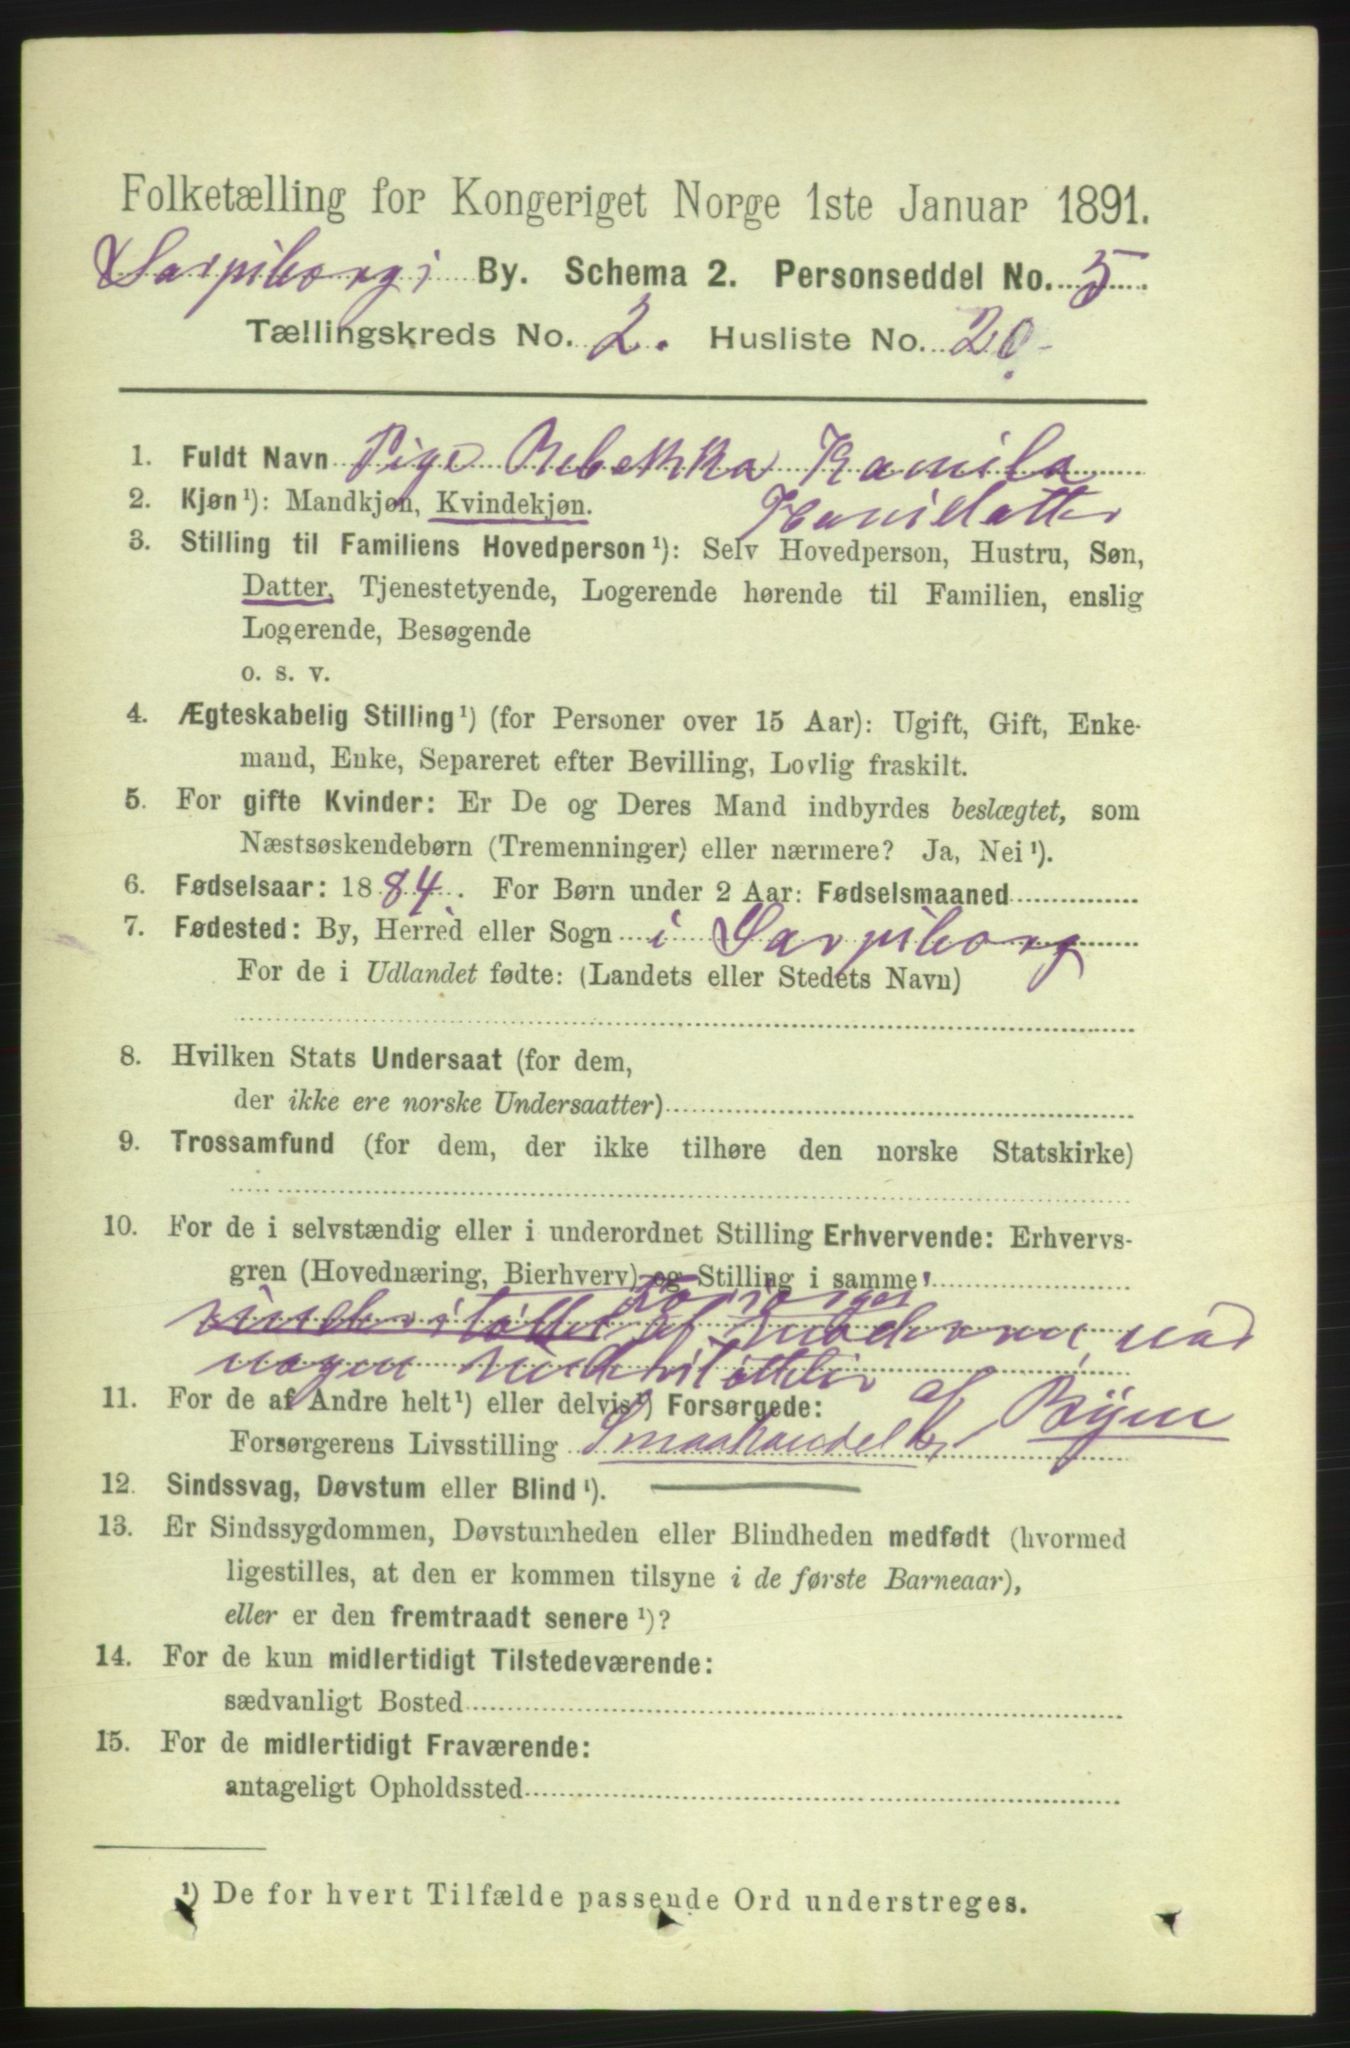 Folketælling for Kongeriget Norge 1ste Januar 1891.
Sarpsborgs By. Schema 2. Personseddel No. 5.
Tællingskreds No. 2. Husliste No. 20.
1. Fuldt Navn Pige Rebekka Kamila
Hansdatter
2. Kjøn ¹): Mandkjøn, Kvindekjøn.
3. Stilling til Familiens Hovedperson ¹): Selv Hovedperson, Hustru, Søn,
Datter, Tjenestetyende, Logerende hørende til Familien, enslig
Logerende, Besøgende
o. s. v.
4. Ægteskabelig Stilling ¹) (for Personer over 15 Aar): Ugift, Gift, Enke-
mand, Enke, Separeret efter Bevilling, Lovlig fraskilt.
5. For gifte Kvinder: Er De og Deres Mand indbyrdes beslægtet, som
Næstsøskendebørn (Tremenninger) eller nærmere? Ja, Nei ¹).
6. Fødselsaar: 1884. For Børn under 2 Aar: Fødselsmaaned
7. Fødested: By, Herred eller Sogn i Sarpsborg
For de i Udlandet fødte: (Landets eller Stedets Navn)
8. Hvilken Stats Undersaat (for dem,
der ikke ere norske Undersaatter)
9. Trossamfund (for dem, der ikke tilhøre den norske Statskirke)
10. For de i selvstændig eller i underordnet Stilling Erhvervende: Erhvervs-
gren (Hovednæring, Bierhverv) og Stilling i samme
forsørges
understøttet af Moderen ved
nogen understøttelse af Byen
11. For de af Andre helt ¹) eller delvis ¹) Forsørgede:
Forsørgerens Livsstilling Smaahandel
12. Sindssvag, Døvstum eller Blind ¹).
13. Er Sindssygdommen, Døvstumheden eller Blindheden medfødt (hvormed
ligestilles, at den er kommen tilsyne i de første Barneaar),
eller er den fremtraadt senere ¹)?
14. For de kun midlertidigt Tilstedeværende:
sædvanligt Bosted
15. For de midlertidigt Fraværende:
antageligt Opholdssted
¹) De for hvert Tilfælde passende Ord understreges.